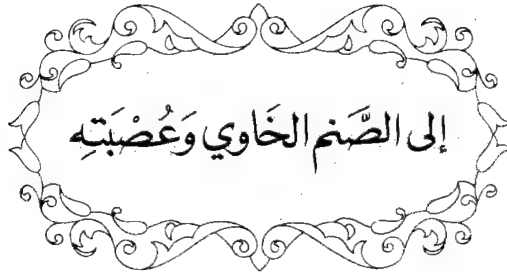 إلى الصَّنم الخَاوي وَعُصْبَتهِ